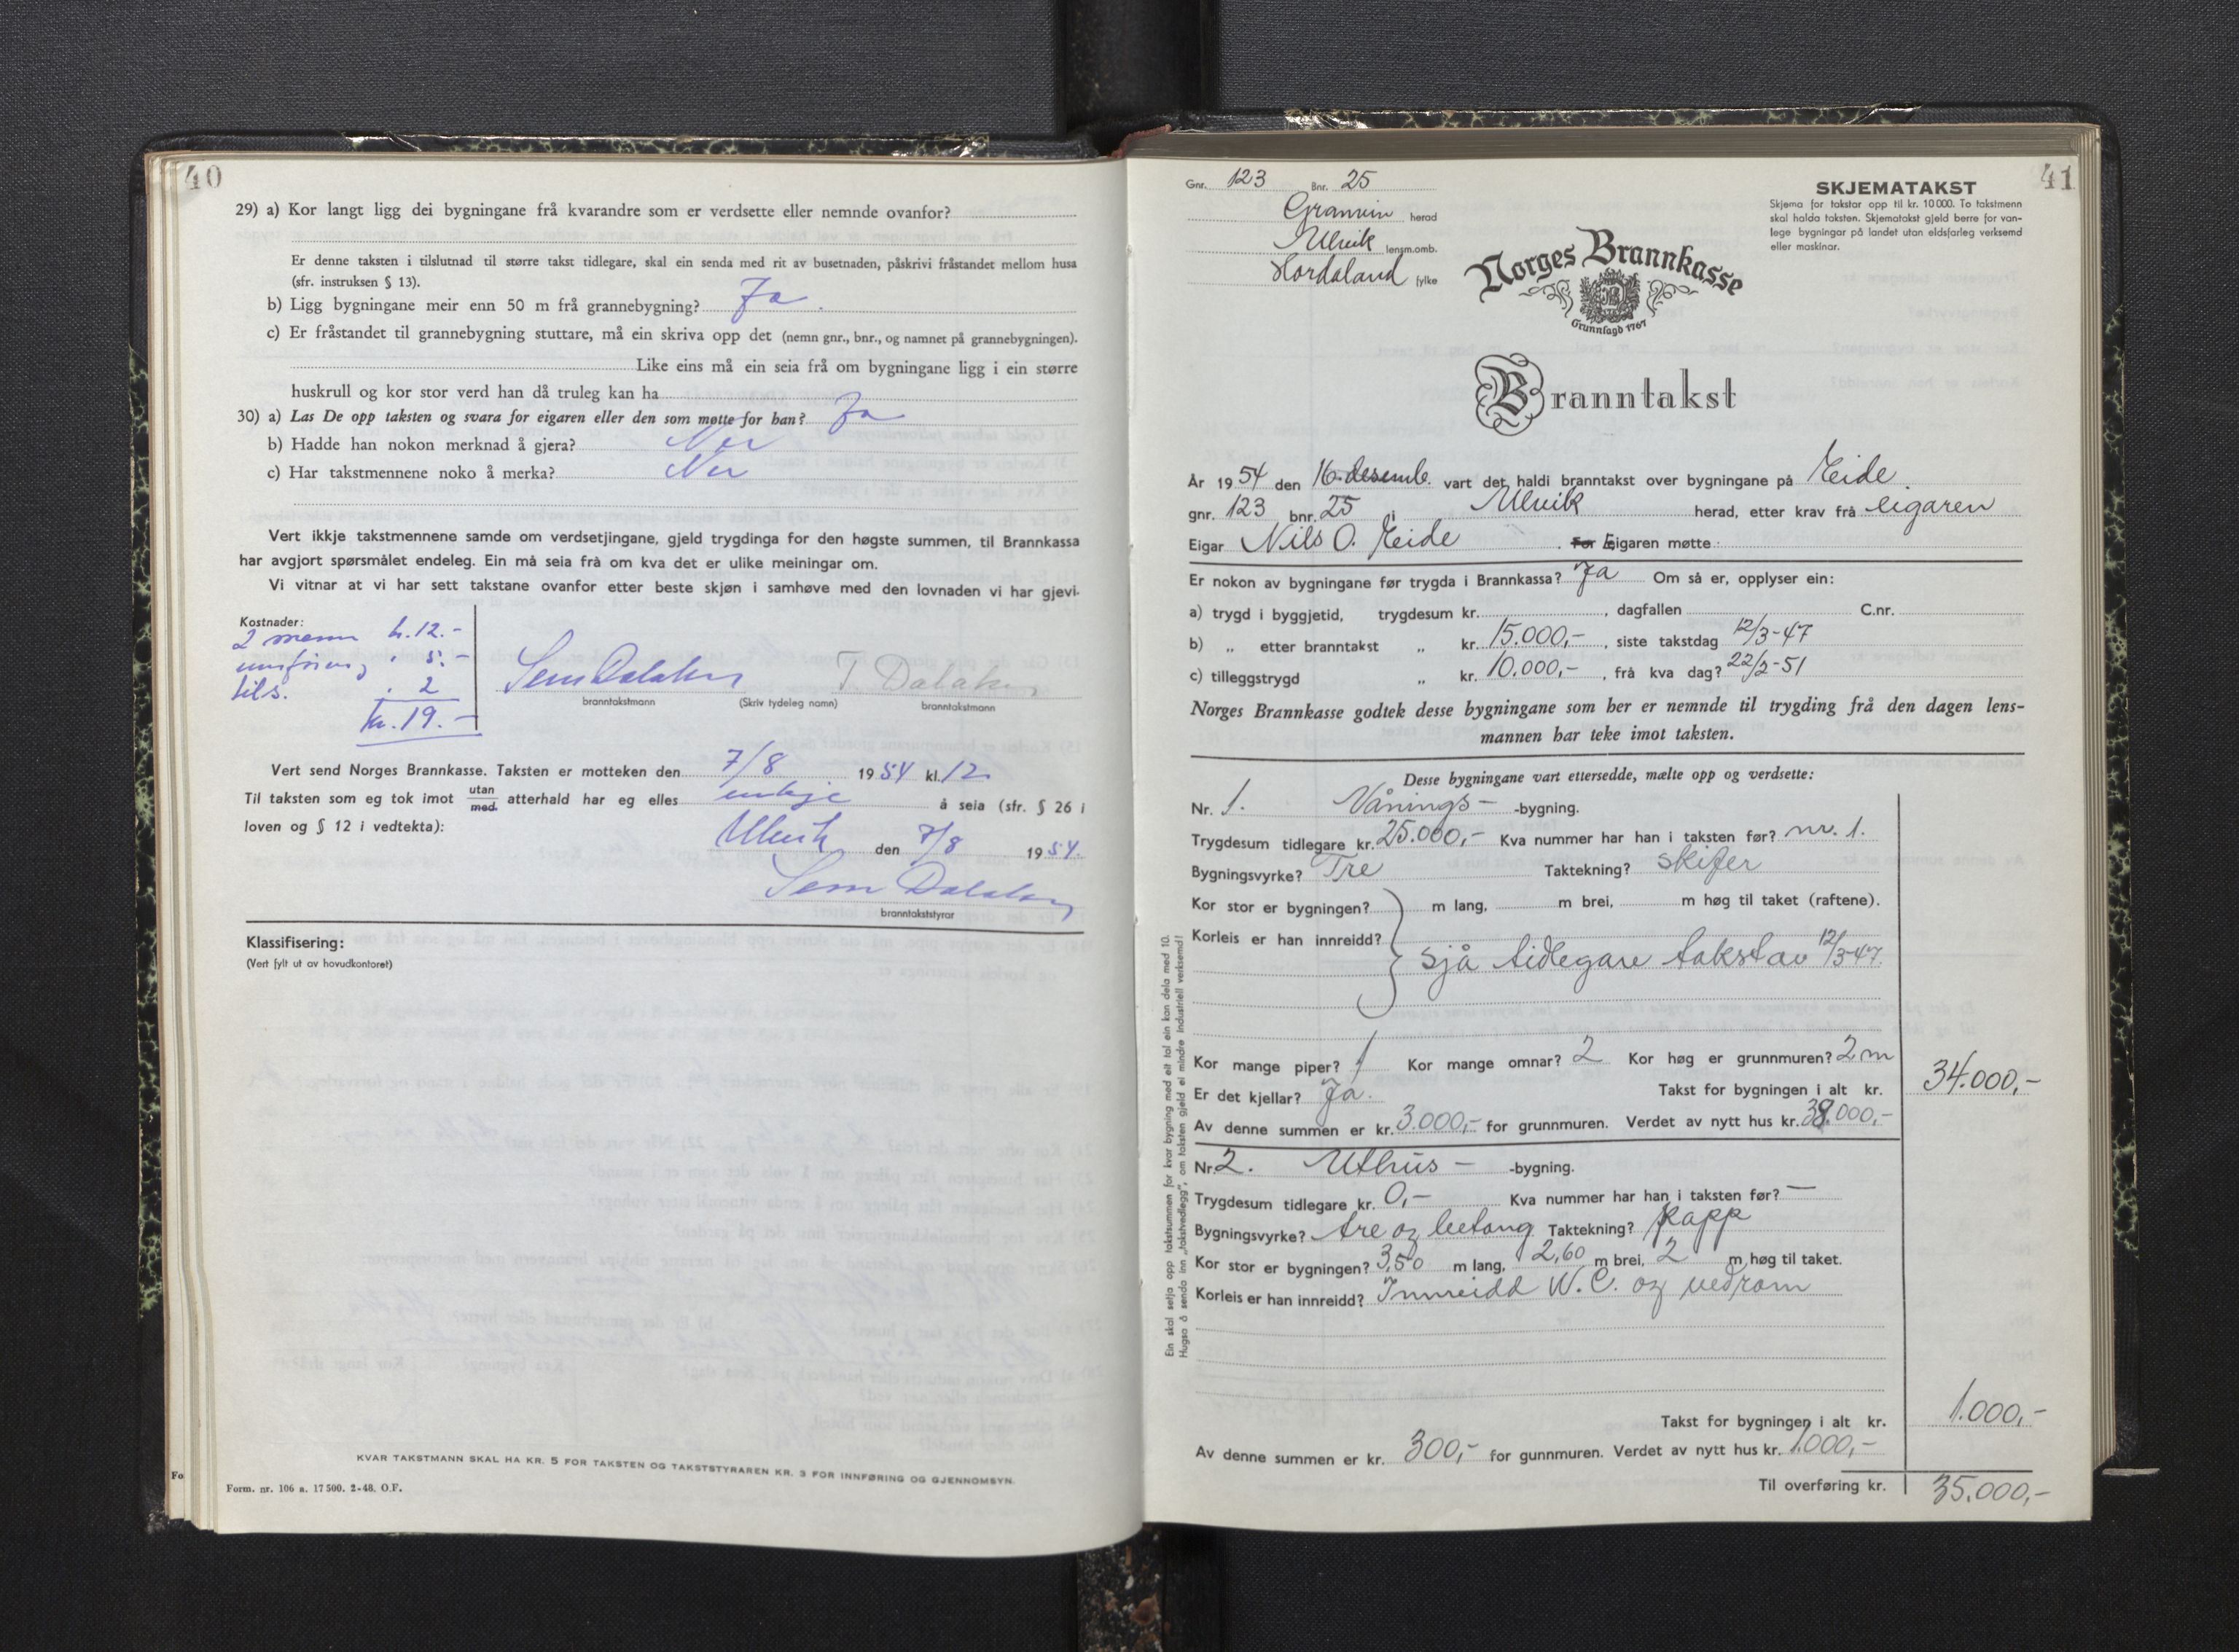 40
29) a) Kor langt ligg dei bygningane frå kvarandre som er verdsette eller nemnde ovanfor?
Er denne taksten i tilslutnad til større takst tidlegare, skal ein senda med rit av busetnaden, påskrivi fråstandet mellom husa
(sfr. instruksen § 13).
b) Ligg bygningane meir enn 50 m frå grannebygning? Ja.
c) Er fråstandet til grannebygning stuttare, må ein skriva opp det (nemn gnr., bnr., og namnet på grannebygningen).
Like eins må ein seia frå om bygningane ligg i ein større
huskrull og kor stor verd han då truleg kan ha
30) a) Las De opp taksten og svara for eigaren eller den som møtte for han? Ja
b) Hadde han nokon merknad å gjera? Nei
c) Har takstmennene noko å merka? Nei
Vert ikkje takstmennene samde om verdsetjingane, gjeld trygdinga for den høgste summen, til Brannkassa
har avgjort spørsmålet endeleg. Ein må seia frå om kva det er ulike meiningar om.
Vi vitnar at vi har sett takstane ovanfor etter beste skjøn i samhøve med den lovnaden vi har gjevi.
Kostnader:
2 menn kr. 12.-
innføring . 5.-
tils. . 2
kr. 19.-
Sem Dalaker T Dalaker
branntakstmann (Skriv tydeleg namn) branntakstmann
Vert send Norges Brannkasse. Taksten er motteken den 7/8 1954 kl. 12
Til taksten som eg tok imot utan med atterhald har eg elles inkje å seia (sfr. § 26 i
loven og § 12 i vedtekta):
Ulvik den 7/8 1954.
Sem Dalaker
branntakststyrar
Klassifisering:
(Vert fylt ut av hovudkontoret)
KVAR TAKSTMANN SKAL HA KR. 5 FOR TAKSTEN OG TAKSTSTYRAREN KR. 3 FOR INNFØRING OG GJENNOMSYN.
Fo
Form. nr. 106 a. 17 500. 2-48. O.F.
41
Gnr. 123 Bnr. 25
Granvin herad
Ulvik lensm.omb.
Hordaland fylke
SKJEMATAKST
Skjema for takstar opp til kr. 10 000. To takstmenn
skal halda taksten. Skjematakst gjeld berre for van-
lege bygningar på landet utan eldsfarleg verksemd
eller maskinar.
Norges Brannkasse
Grunnlagd 1767
Branntakst
År 1954 den 16. desemb. vart det haldi branntakst over bygningane på Eide.
gnr. 123 bnr. 25 i Ulvik herad, etter krav frå eigaren
Eigar Nils O. Eide . For Eigaren møtte:
Er nokon av bygningane før trygda i Brannkassa? Ja Om så er, opplyser ein:
a) trygd i byggjetid, trygdesum kr. , dagfallen C.nr.
b) „ etter branntakst „ kr. 15.000,- , siste takstdag 12/3-47
c) tilleggstrygd „ kr. 10.000,- , frå kva dag? 22/2-51
Norges Brannkasse godtek desse bygningane som her er nemnde til trygding frå den dagen lens-
mannen har teke imot taksten.
Desse bygningane vart ettersedde, mælte opp og verdsette:
Nr. 1. Vånings- -bygning.
Trygdesum tidlegare kr. 25.000,- Kva nummer har han i taksten før? nr. 1.
Bygningsvyrke? Tre Taktekning? skifer
Kor stor er bygningen? m lang, m brei, m høg til taket (raftene).
Korleis er han innreidd?
sjå tidlegare takst av 12/3-47.
Kor mange piper? 1 Kor mange omnar? 2 Kor høg er grunnmuren? 2 m
Er det kjellar? Ja. Takst for bygningen i alt kr. 34.000,-
Av denne summen er kr. 3.000,- for grunnmuren. Verdet av nytt hus kr. 38.000,-
Nr. 2. Uthus- -bygning.
Trygdesum tidlegare kr. 0,- Kva nummer har han i taksten før? —
Bygningsvyrke? tre og betong Taktekning? papp
Kor stor er bygningen? 3,50 m lang, 2,60 m brei, 2 m høg til taket.
Korleis er han innreidd? Innreidd W.C. og vedrom
Takst for bygningen i alt kr. 1.000,-
Av denne summen er kr. 300,- for gunnmuren. Verdet av nytt hus kr. 1.000,-
Til overføring kr. 35.000,-
Ein skal setja opp takstsummen for kvar bygning med eit tal ein kan dela med 10.
Hugsa å senda inn „takstvedlegg", om taksten gjeld ei mindre industriell verksemd!